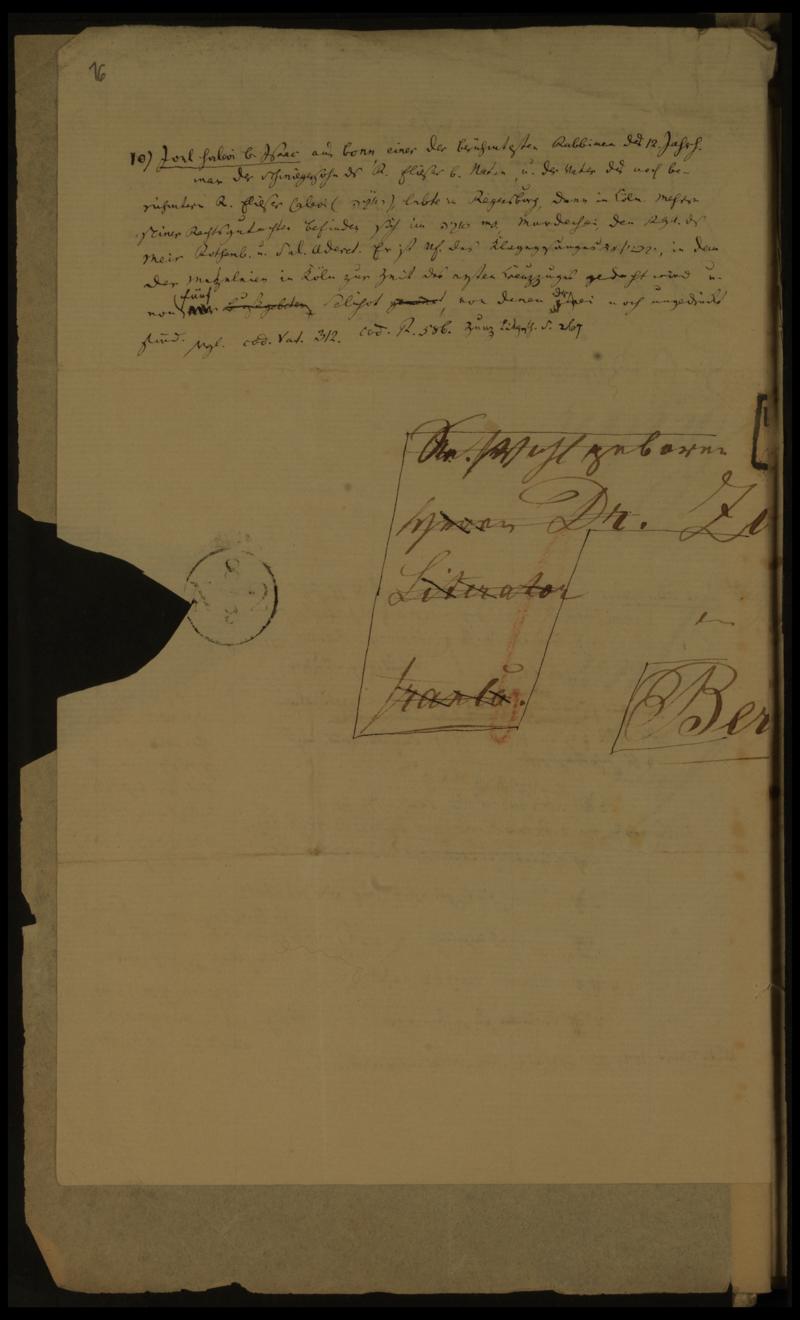 16
10) Joel halevi b. Isaac aus bonn, einer der berühmtesten Rabbinen des 12. Jahrh.
war der Schwiegersohn des R. Elieser b. Natan, u. der Vater des noch be-
rühmtern R. Elieser halevi ( ראבי"ה ), lebte in Regensburg, dann in Cöln. Mehre
seiner Rechtsgutachten befinden sich im Mordechai, den RGA. des
Meir Rothenb. u. Sal. Aderet. Er ist Vf. des Klagegesanges, in dem
der Metzeleien in Köln zur Zeit des ersten Kreuzzuges gedacht wird u.
von fünf Selichot, von denen drei noch ungedruckt
sind. Vgl. cod. Vat. 312. cod. R. 586. Zunz S. 267
Sr. Wohlgeboren
Herrn Dr. Zu
Literator
in
franko.
Ber